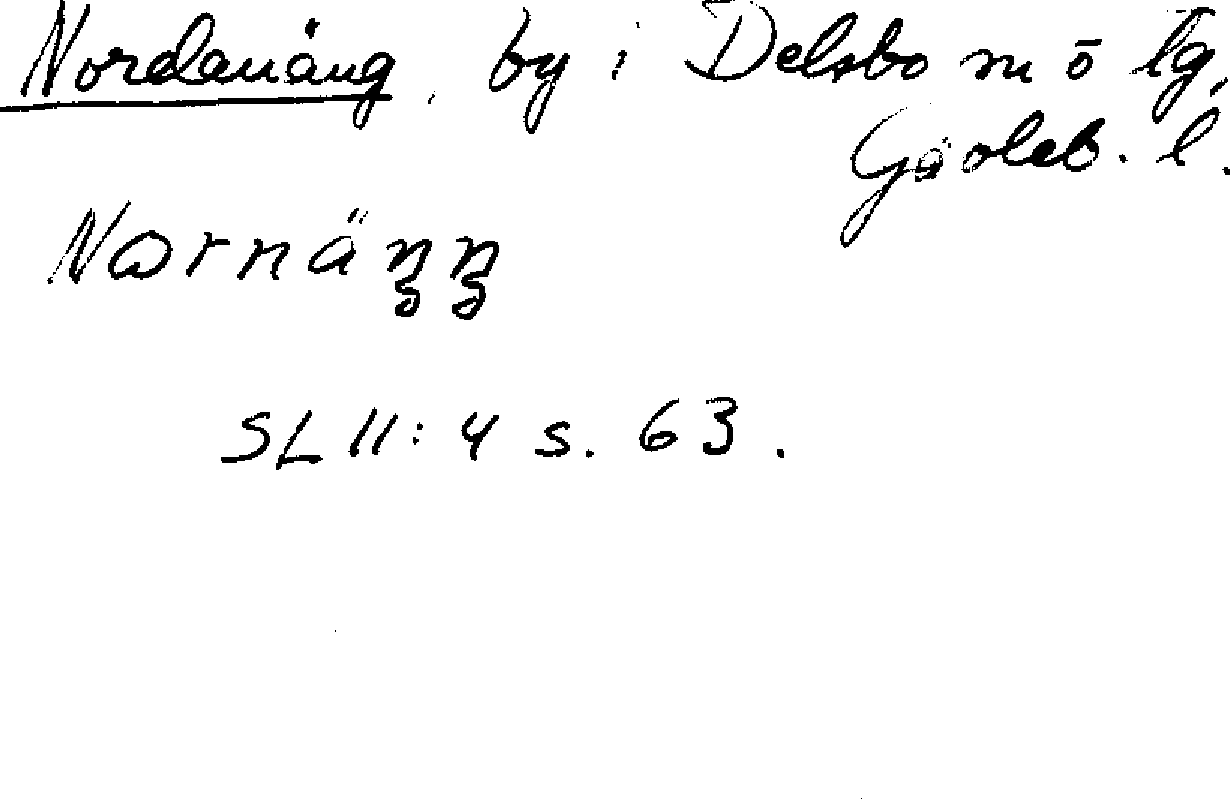 Nordanäng, by i Delsbo sn o tg,
Gävleb. l.
Nornäŋŋ
SL II: 4 s. 63.